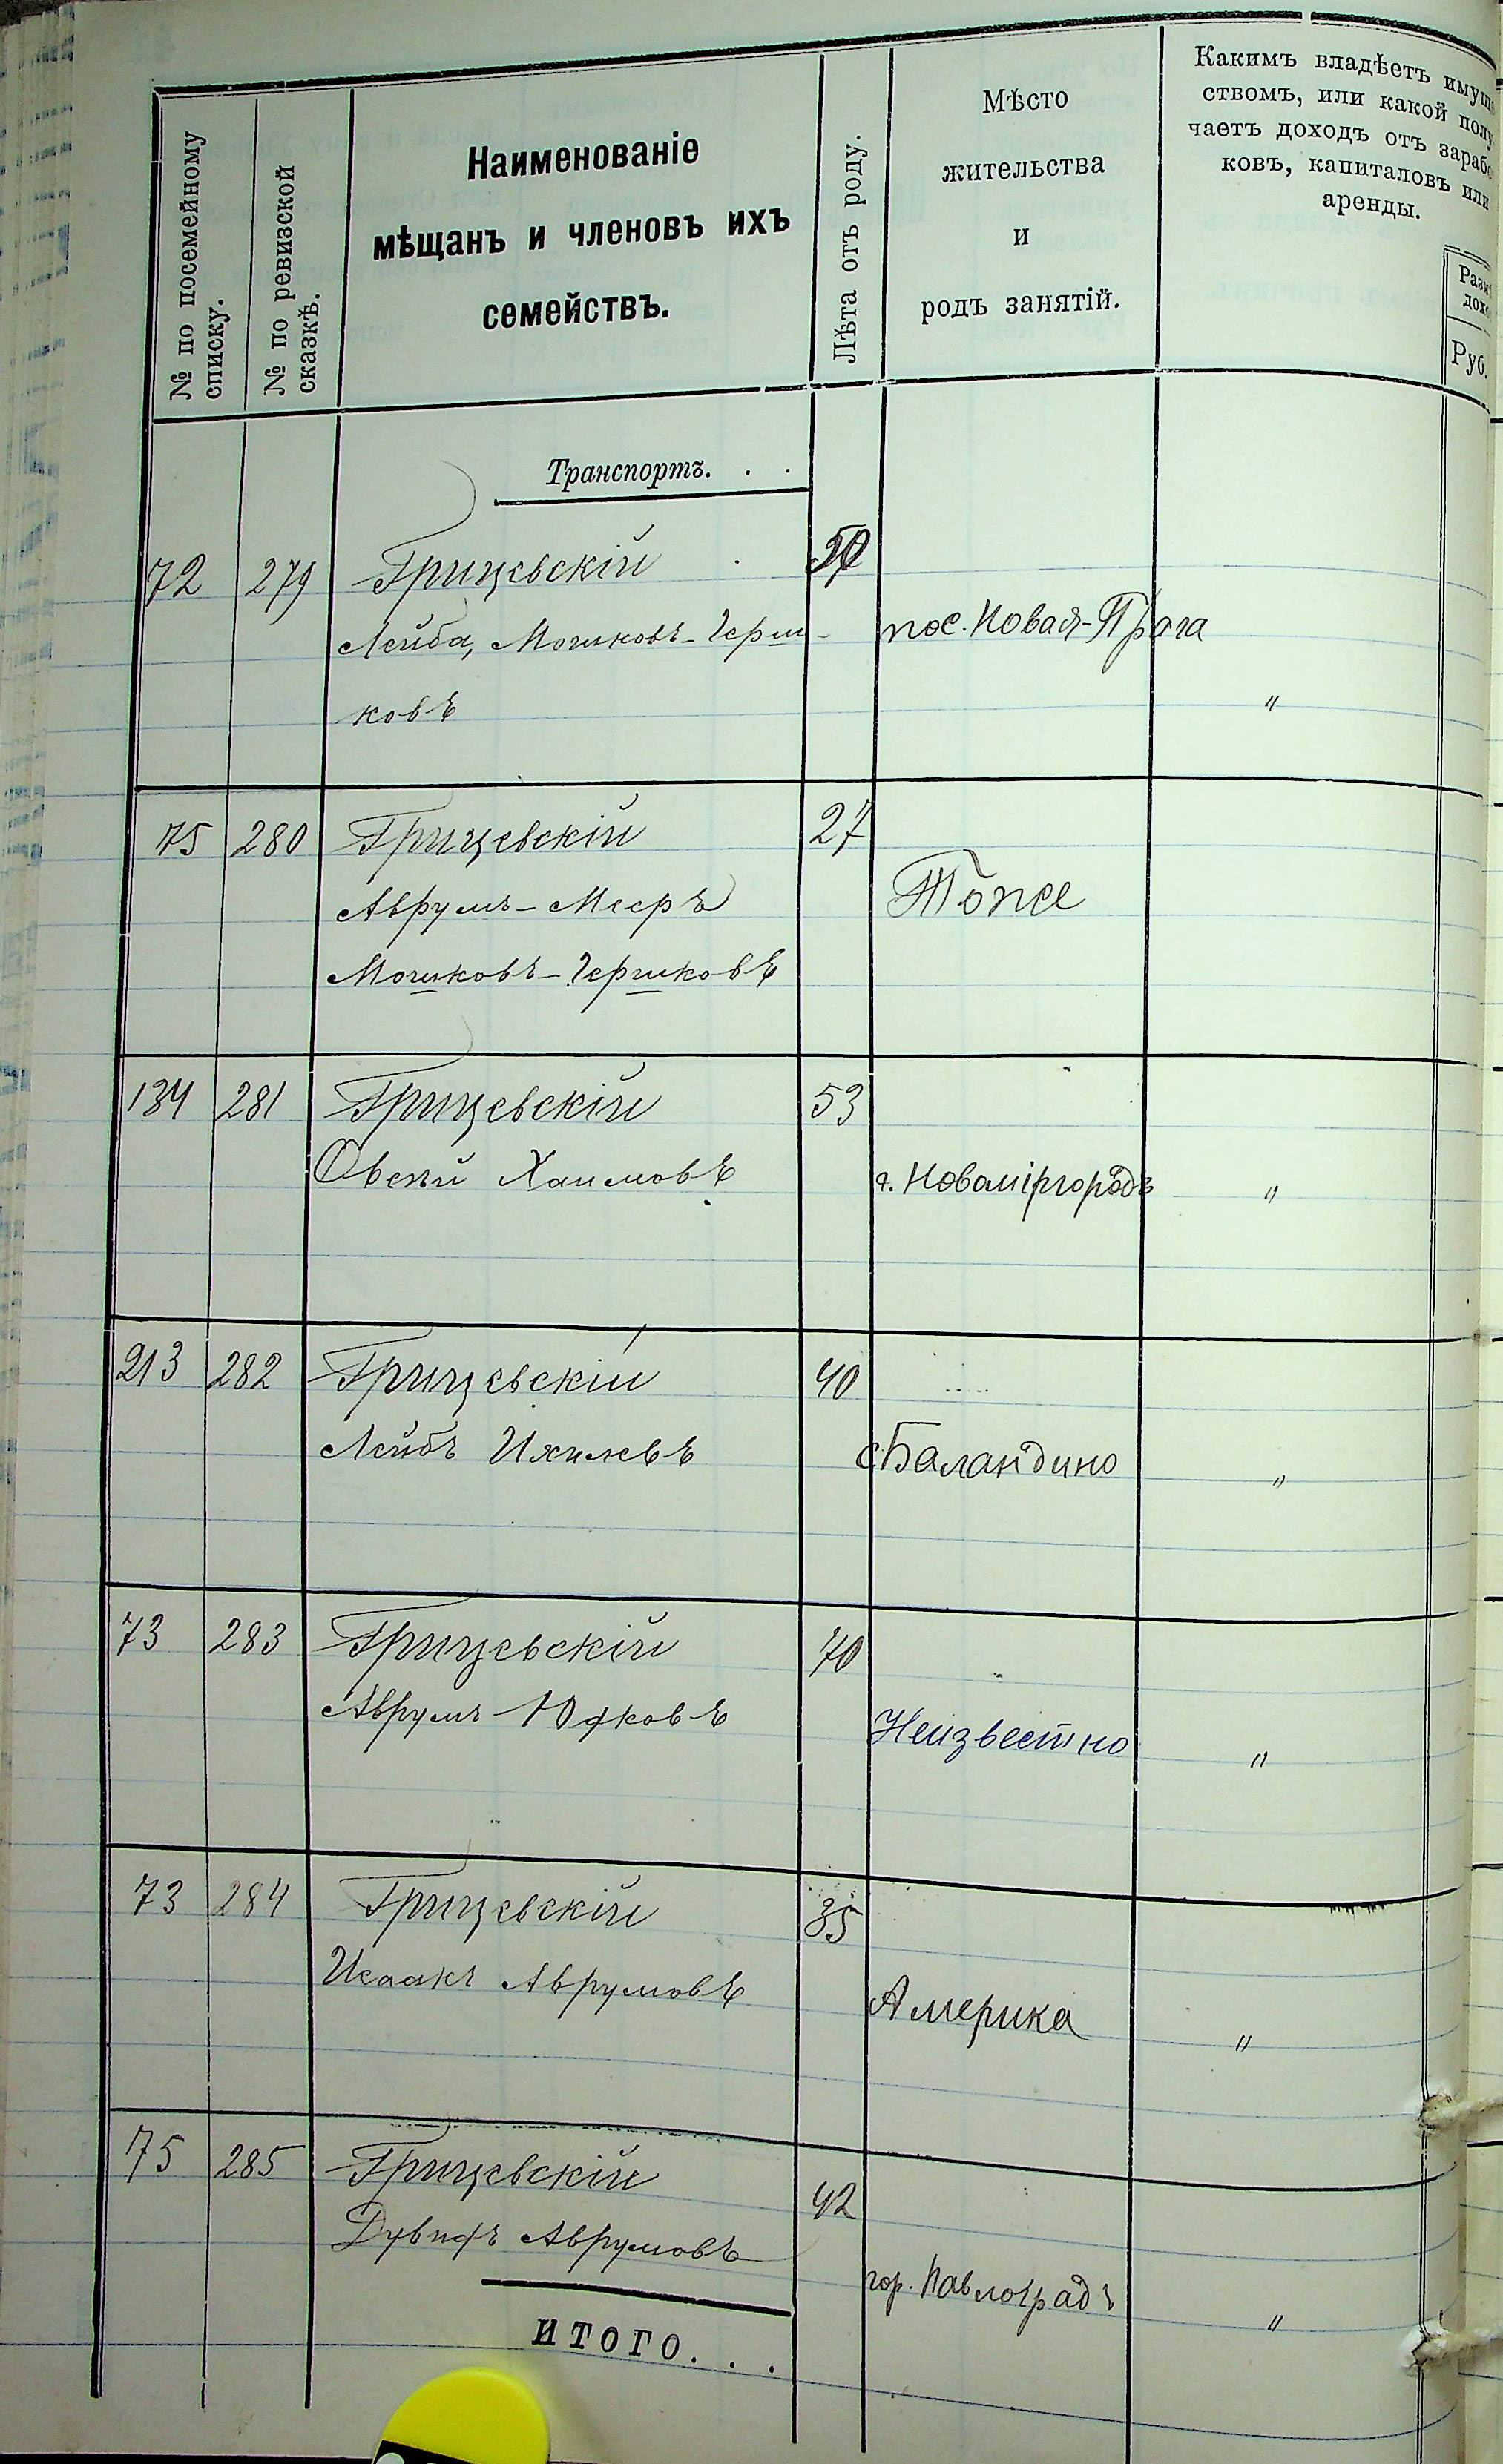 № по посемейному
списку.
№ по ревизской
сказкѣ.
Наименованіе
мѣщанъ и членовъ ихъ
семействъ.
Лѣта отъ роду.
Мѣсто
жительства
и
родъ занятій.
Какимъ владѣетъ имуще
ствомъ, или какой полу
чаетъ доходъ отъ зарабо
ковъ, капиталовъ или
аренды.
Разм
дохо
Руб.
Транспортъ. . .
72 279 Грищевскій
Лейба, Мошковъ-Герш- пос. Новая-Прага
ковъ "
75 280 Грищевскій 27
Аврумъ-Мееръ Тоже
Мошковъ-Гершковъ
134 281 Грищевскій 53
Овсѣй Хаимовъ г. Новоміргородъ "
213 282 Грищевскій 40
Лейбъ Ихилевъ с. Баландино "
73 283 Грищевскій 70
Аврумъ Юдковъ Неизвестно "
73 284 Грищевскій 35
Исаакъ Аврумовъ Америка "
75 285 Грищевскій 42
Дувидъ Аврумовъ гор. Павлоградъ "
ИТОГО. . .